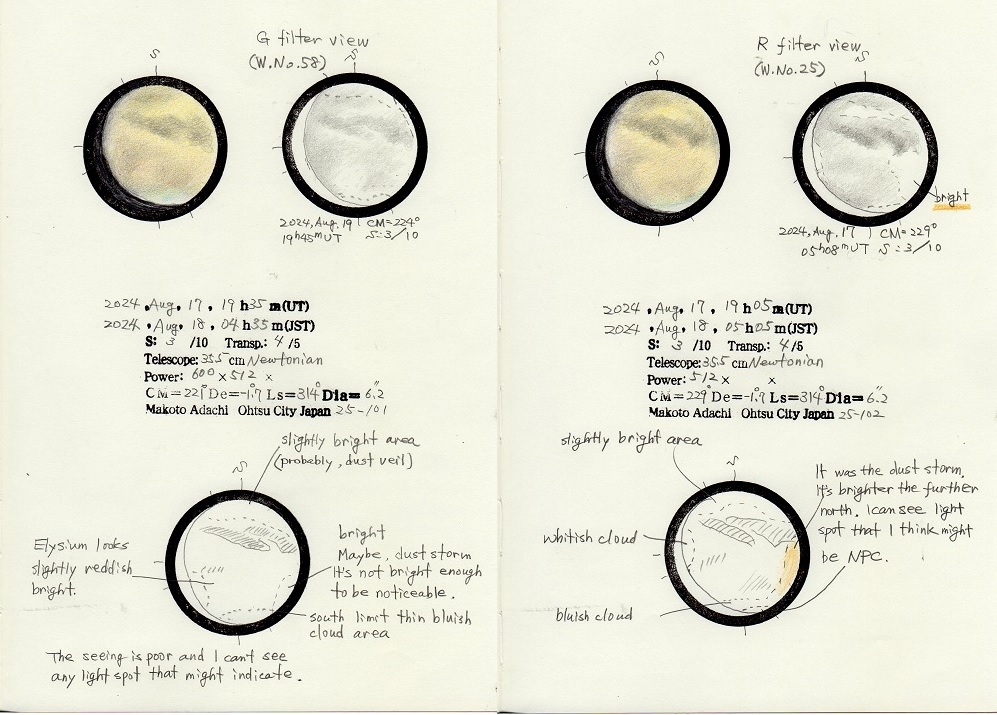 G filter view
(W.No.58)
S
S
2024, Aug. 19 | CM=224°
19h45m UT S:3/10
2024, Aug. 17, 19 h 35 m (UT)
2024, Aug. 18, 04 h 35 m (JST)
S: 3 /10 Transp.: 4 /5
Telescope: 355 cm Newtonian
Power: 600 x 512 x
CM=221° De=-1.7° Ls=314° Dia= 6".2
Makoto Adachi Ohtsu City Japan 25-101
slightly bright area
(probably, dust veil)
S
Elysium looks
slightly reddish
bright.
bright
Maybe, dust storm
It's not bright enough
to be noticeable.
south limit thin bluish
cloud area
The seeing is poor and I can't see
any light spot that might indicate.
R filter view
(W.No.25)
S
S
bright
2024, Aug. 17 | CM=229°
05h08m UT S:3/10
2024, Aug. 17, 19 h 05 m (UT)
2024, Aug. 18, 05 h 05 m (JST)
S: 3 /10 Transp.: 4 /5
Telescope: 355 cm Newtonian
Power: 512 x x
CM=229° De=-1.7° Ls=314° Dia= 6".2
Makoto Adachi Ohtsu City Japan 25-102
slightly bright area
S
It was the dust storm.
It's brighter the further
north. I can see light
spot that I think might
be NPC.
whitish cloud
bluish cloud